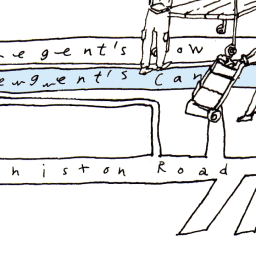 egent's ow
egent's Can
histon Road